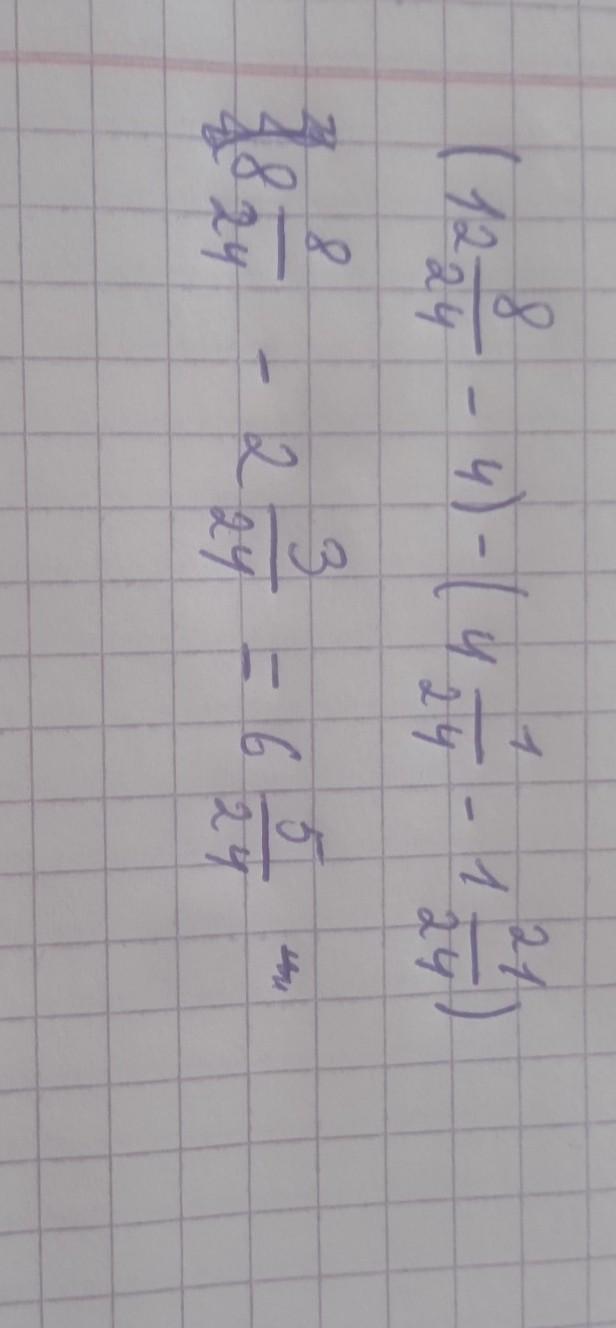 (12 8/24 - 4) - (4 1/24 - 1 21/24)
8 8/24 - 2 3/24 = 6 5/24